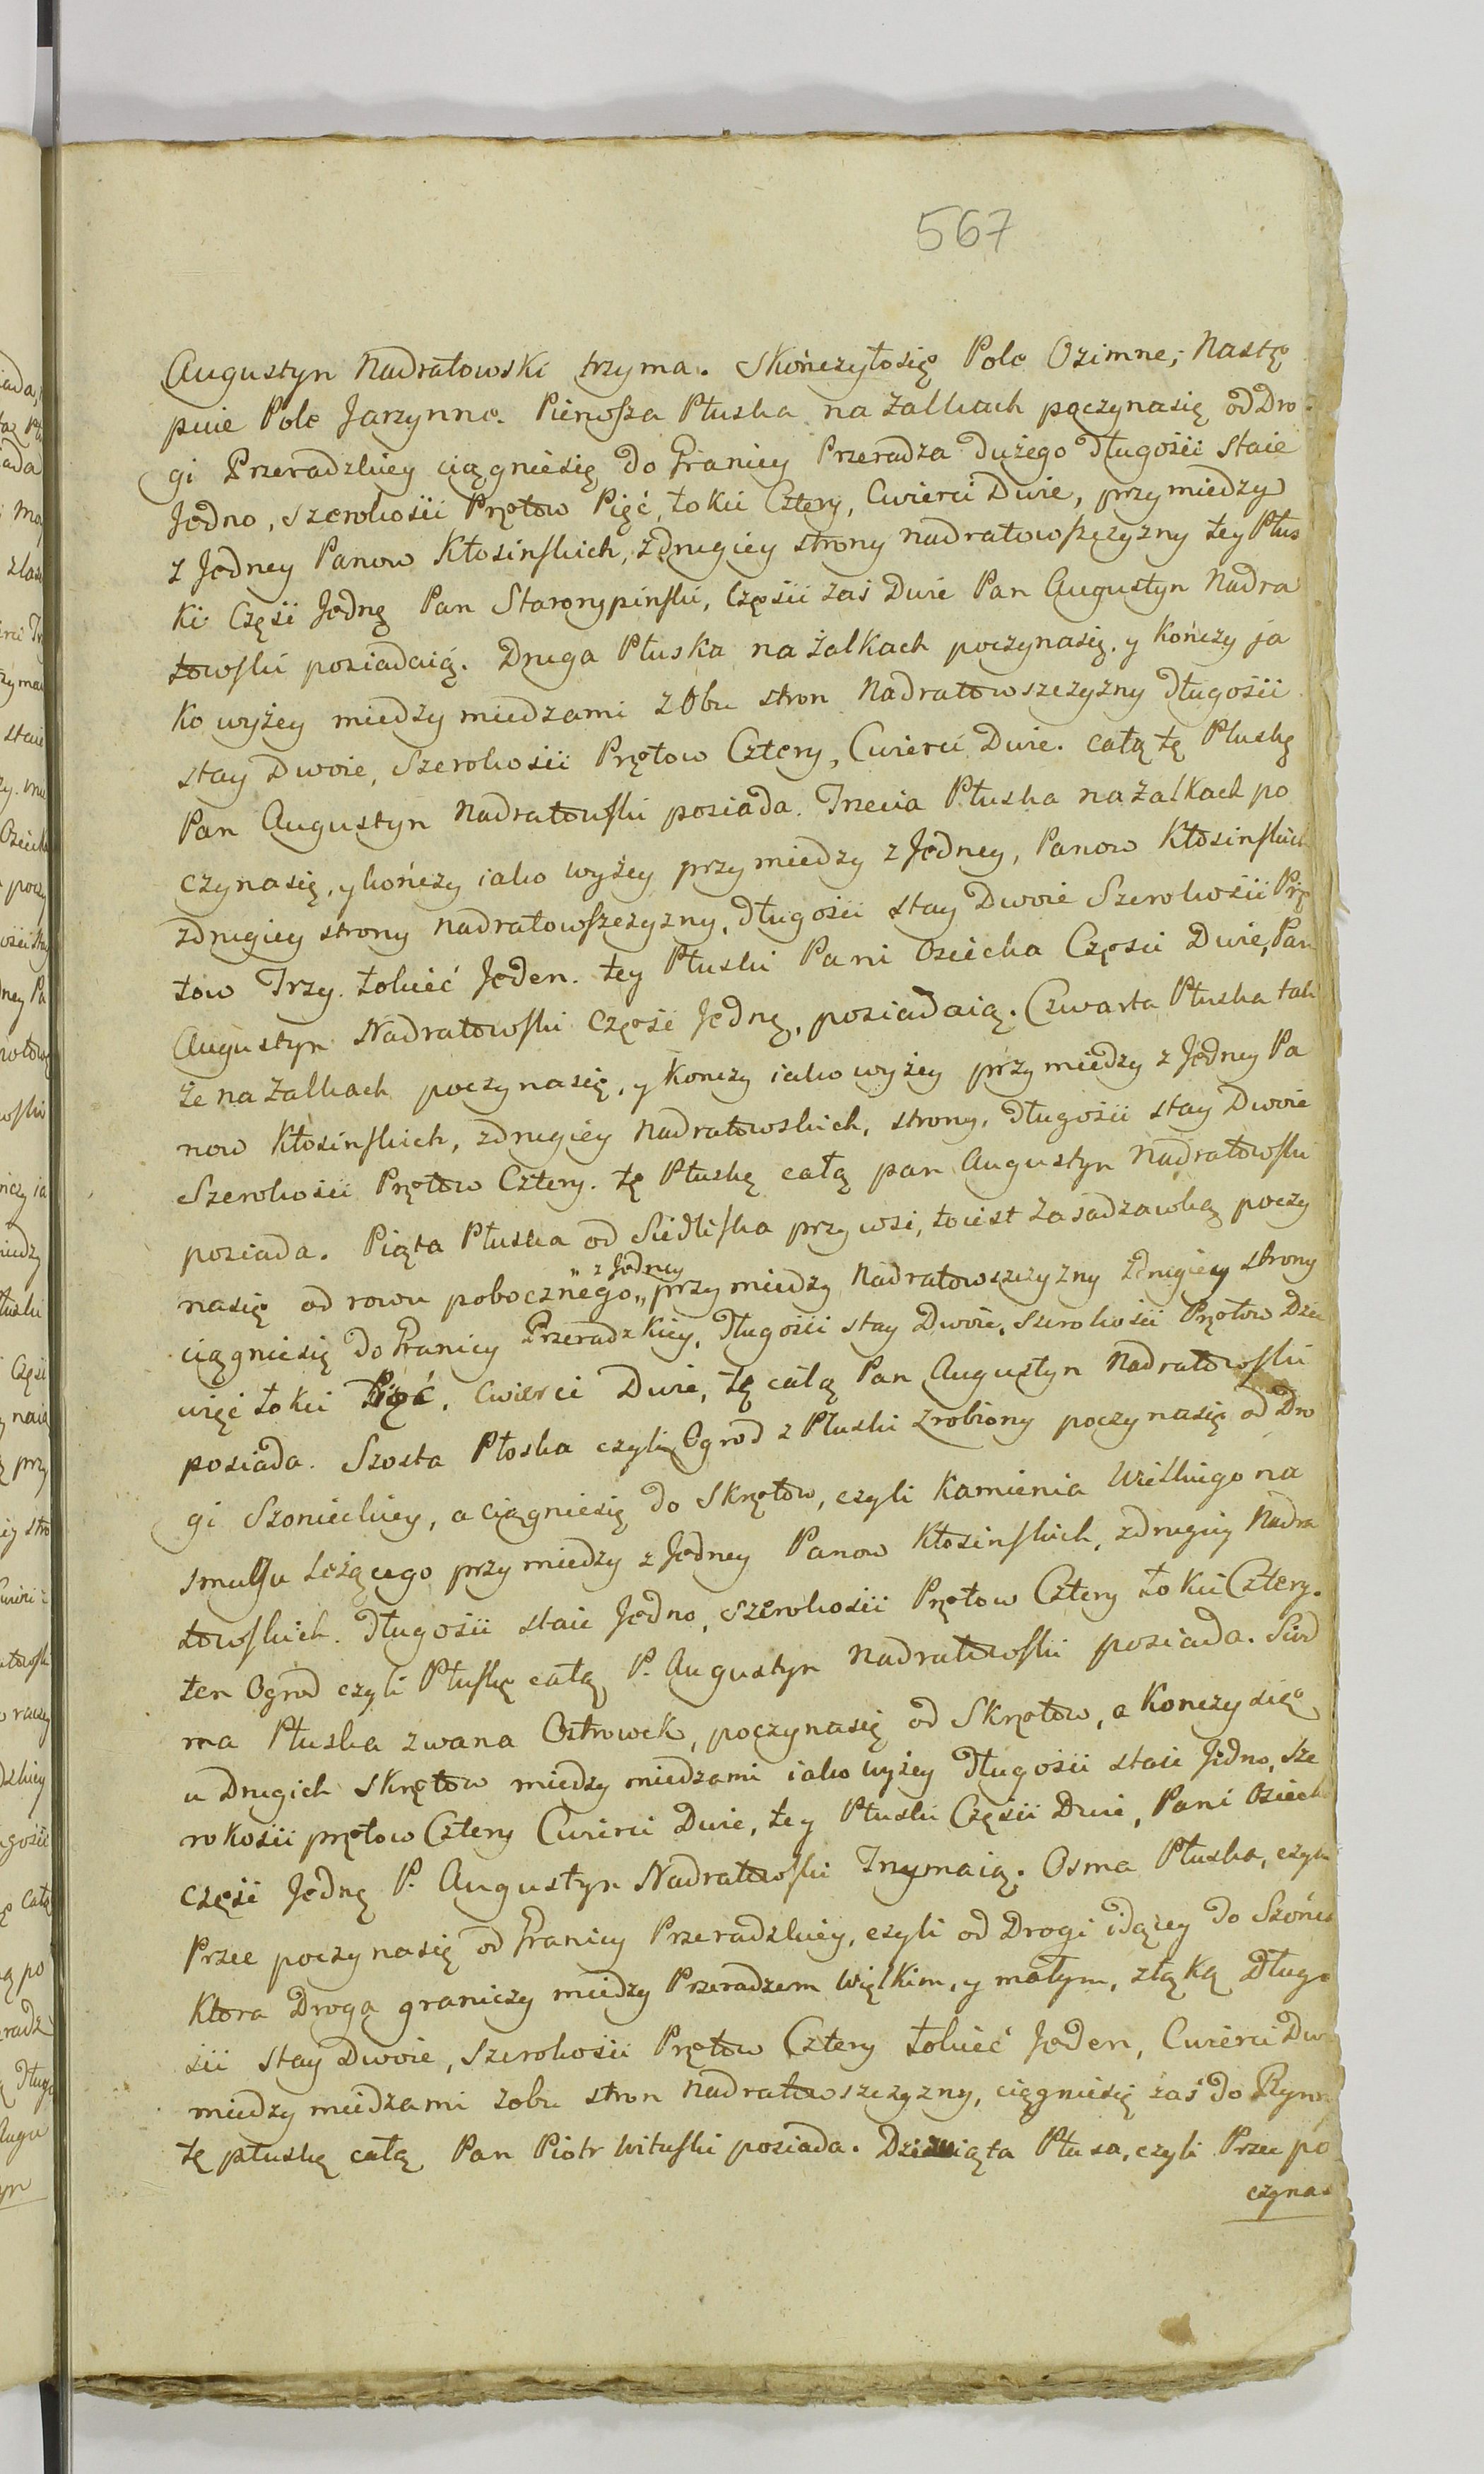 567
Augustyn Nadratowski trzyma. Skończyłosię Pole Ozimne; Nastę
puie Pole Jarzynne. Pierwsza Płuska na Żalkach poczynasię od Dro
gi Przeradzkiey ciągniesię do Granicy Przeradza dużego Długości staie
Jedno, Szerokości Prętow Pięć, łokci Cztery, Cwierci Dwie, przy miedzy
z Jedney Panow Kłosinskich, zdrugiey strony nadratowszczyzny tey Płus
ki Części Jednę Pan Starorypinski, Części zaś Dwie Pan Augustyn Nadra
towski posiadaią. Druga Płuska na Żalkach poczynasię, y kończy ja
ko wyżey miedzy miedzami z Obu stron Nadratowszczyzny Długości
stay Dwoie, Szerokości Prętow Cztery, Cwierci Dwie. całą tę Płuskę
Pan Augustyn Nadratowski posiada. Trzecia Płuska na Żalkach po
czynasię, y kończy iako wyżey przy miedzy z Jedney, Panow Kłosinskich
zdrugiey strony nadratowszczyzny, Długości stay Dwoie Szerokości Prę
tow Trzy. łokieć Jeden. tey Płuski Pani Osiecka Części Dwie, Pan
Augustyn Nadratowski Część Jednę, posiadaią. Czwarta Płuska tak
że na Żalkach poczynasię, y konczy iako wyżey przy miedzy z Jedney Pa
now Kłosinskich, zdrugiey Nadratowskich, strony, Długości stay Dwoie
Szerokości Prętow Cztery. tę Płuskę całą pan Augustyn Nadratowski
posiada. Piąta Płuska od Siedliska przy wsi, toiest za sadzawką poczy
nasię od rowu pobocznego „z Jedney„ przy miedzy Nadratowszczyzny zdrugiey strony
ciągniesię do Granicy Przeradzkiey, Długości stay Dwoie, Szerokości Prętow Dzie
więć łokci Pięć, Cwierci Dwie, tę całą Pan Augustyn Nadratowski
posiada. Szosta Płoska czyli Ogrod z Płuski zrobiony poczynasię od Dro
gi Szonieckiey, a ciągniesię do Skrętow, czyli Kamienia Wielkiego na
smugu Leżącego przy miedzy z Jedney Panow Kłosinskich, zdrugiey Nadra
towskich. Długości staie Jedno, Szerokości Prętow Cztery łokci Cztery.
ten Ogrod czyli Płuskę całą P. Augustyn Nadratowski posiada. Siod
ma Płuska zwana Ostrowek, poczynasię od Skrętow, a Konczy się
u Drugich skrętow miedzy miedzami iako wyżey Długości staie Jedno, Sze
rokości prętow Cztery Cwierci Dwie, tey Płuski Części Dwie, Pani Osiecka
Część Jednę P. Augustyn Nadratowski Trzymaią. Osma Płuska, czyli
Przec poczynasię od Granicy Przeradzkiey, czyli od Drogi idącey do Szońca
Ktora Droga graniczy miedzy Przeradzem Wielkim, y małym, złąką Długo
ści stay Dwoie, Szerokości Prętow Cztery łokieć Jeden, Cwierci Dwie
miedzy miedzami zobu stron Nadratowszczyzny, ciągniesię zaś do
tę płuskę całą Pan Piotr Wituski posiada. Dziewiąta Płusa, czyli Przec po
czynas